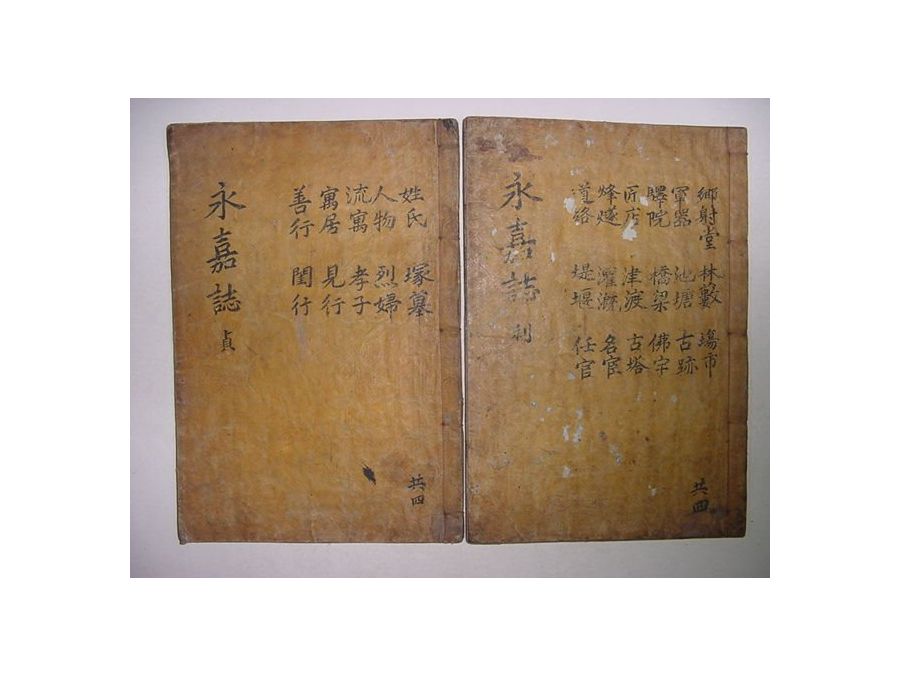 鄉射堂 林藪 場市
軍器 池塘 古跡
驛院 橋梁 佛宇
匠店 津渡 古塔
烽燧 灌漑 名宦
道路 堤堰 任官
永嘉誌 利
共四
姓氏 塚墓
人物 烈婦
流寓 孝子
寓居 見行
善行 閨行
永嘉誌 貞
共四